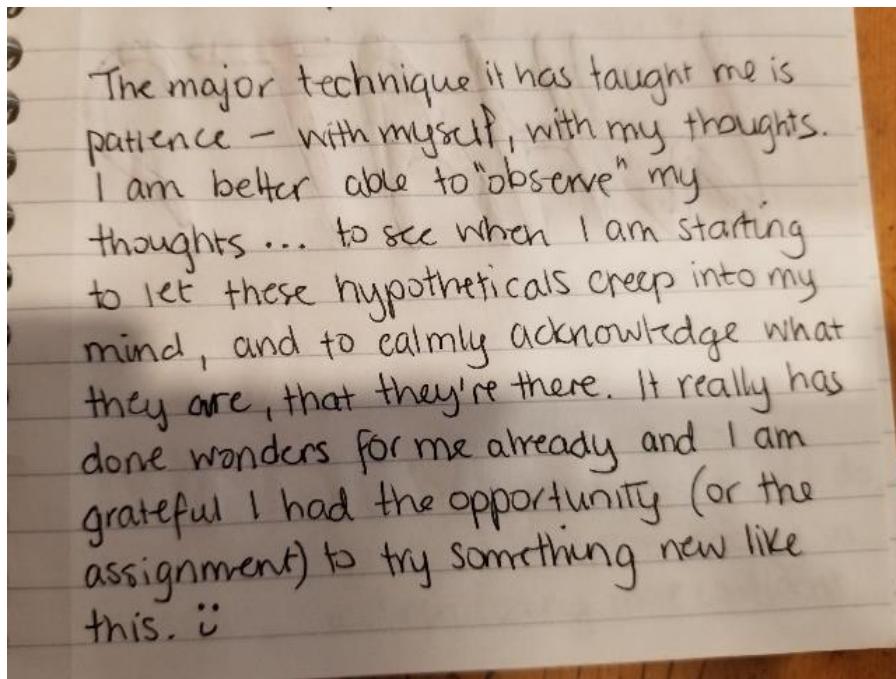 The major technique it has taught me is
patience – with myself, with my thoughts.
I am better able to "observe" my
thoughts ... to see when I am starting
to let these hypotheticals creep into my
mind, and to calmly acknowledge what
they are, that they're there. It really has
done wonders for me already and I am
grateful I had the opportunity (or the
assignment) to try something new like
this. :)